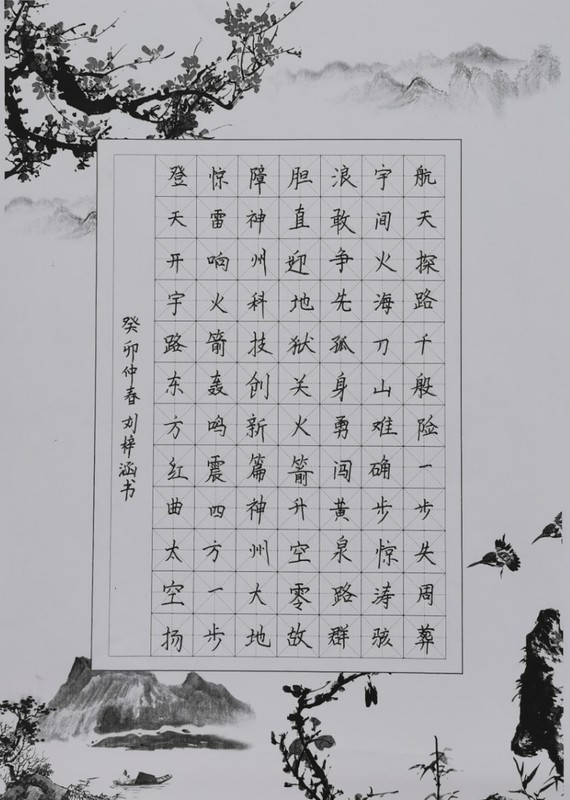 航天探路千般险一步失周葬
宇间火海刀山难确步惊涛骇
浪敢争先孤身勇闯黄泉路群
胆直迎地狱关火箭升空零故
障神州科技创新篇神州大地
惊雷响火箭轰鸣震四方一步
登天开宇路东方红曲太空扬
癸卯仲春刘梓涵书